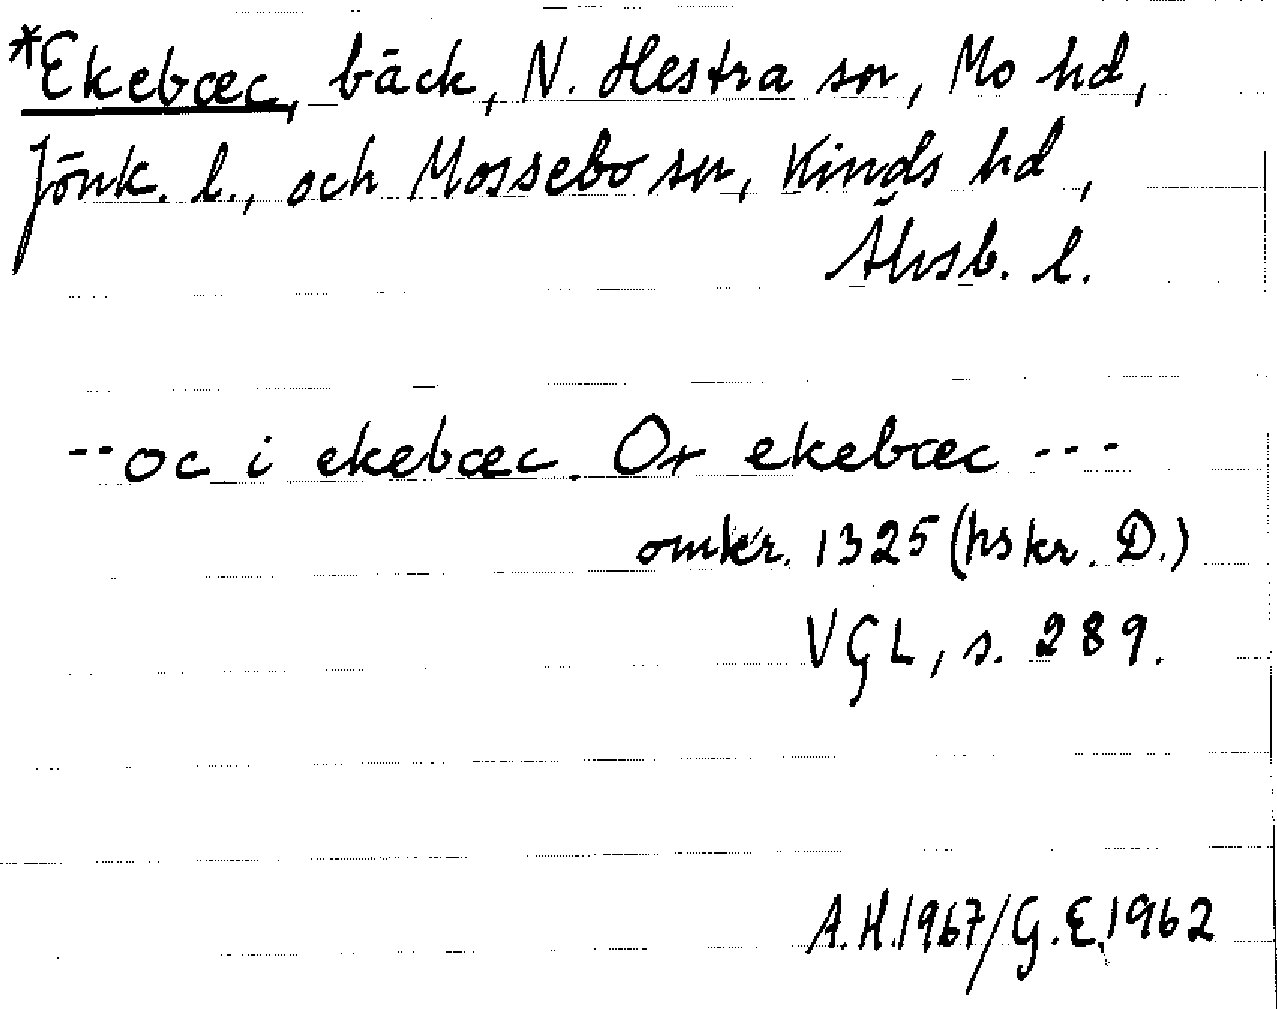 *Ekebæc, bäck, N. Hestra sn, Mo hd,
Jönk. l., och Mossebo sn, Kinds hd,
Älvsb. l.
--oc i ekebæc. Or ekebæc ---
omkr. 1325 (hskr. D.)
VGL, s. 289.
A.H.1967/G.E.1962